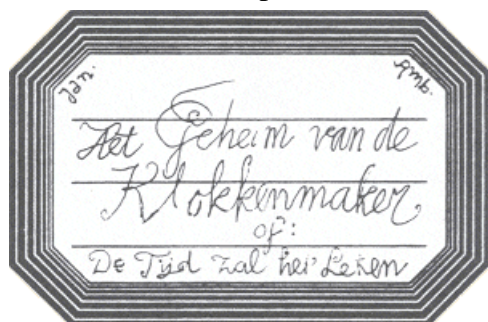 Jan. Amb.
Het Geheim van de
Klokkenmaker
of:
De Tijd zal het Leren